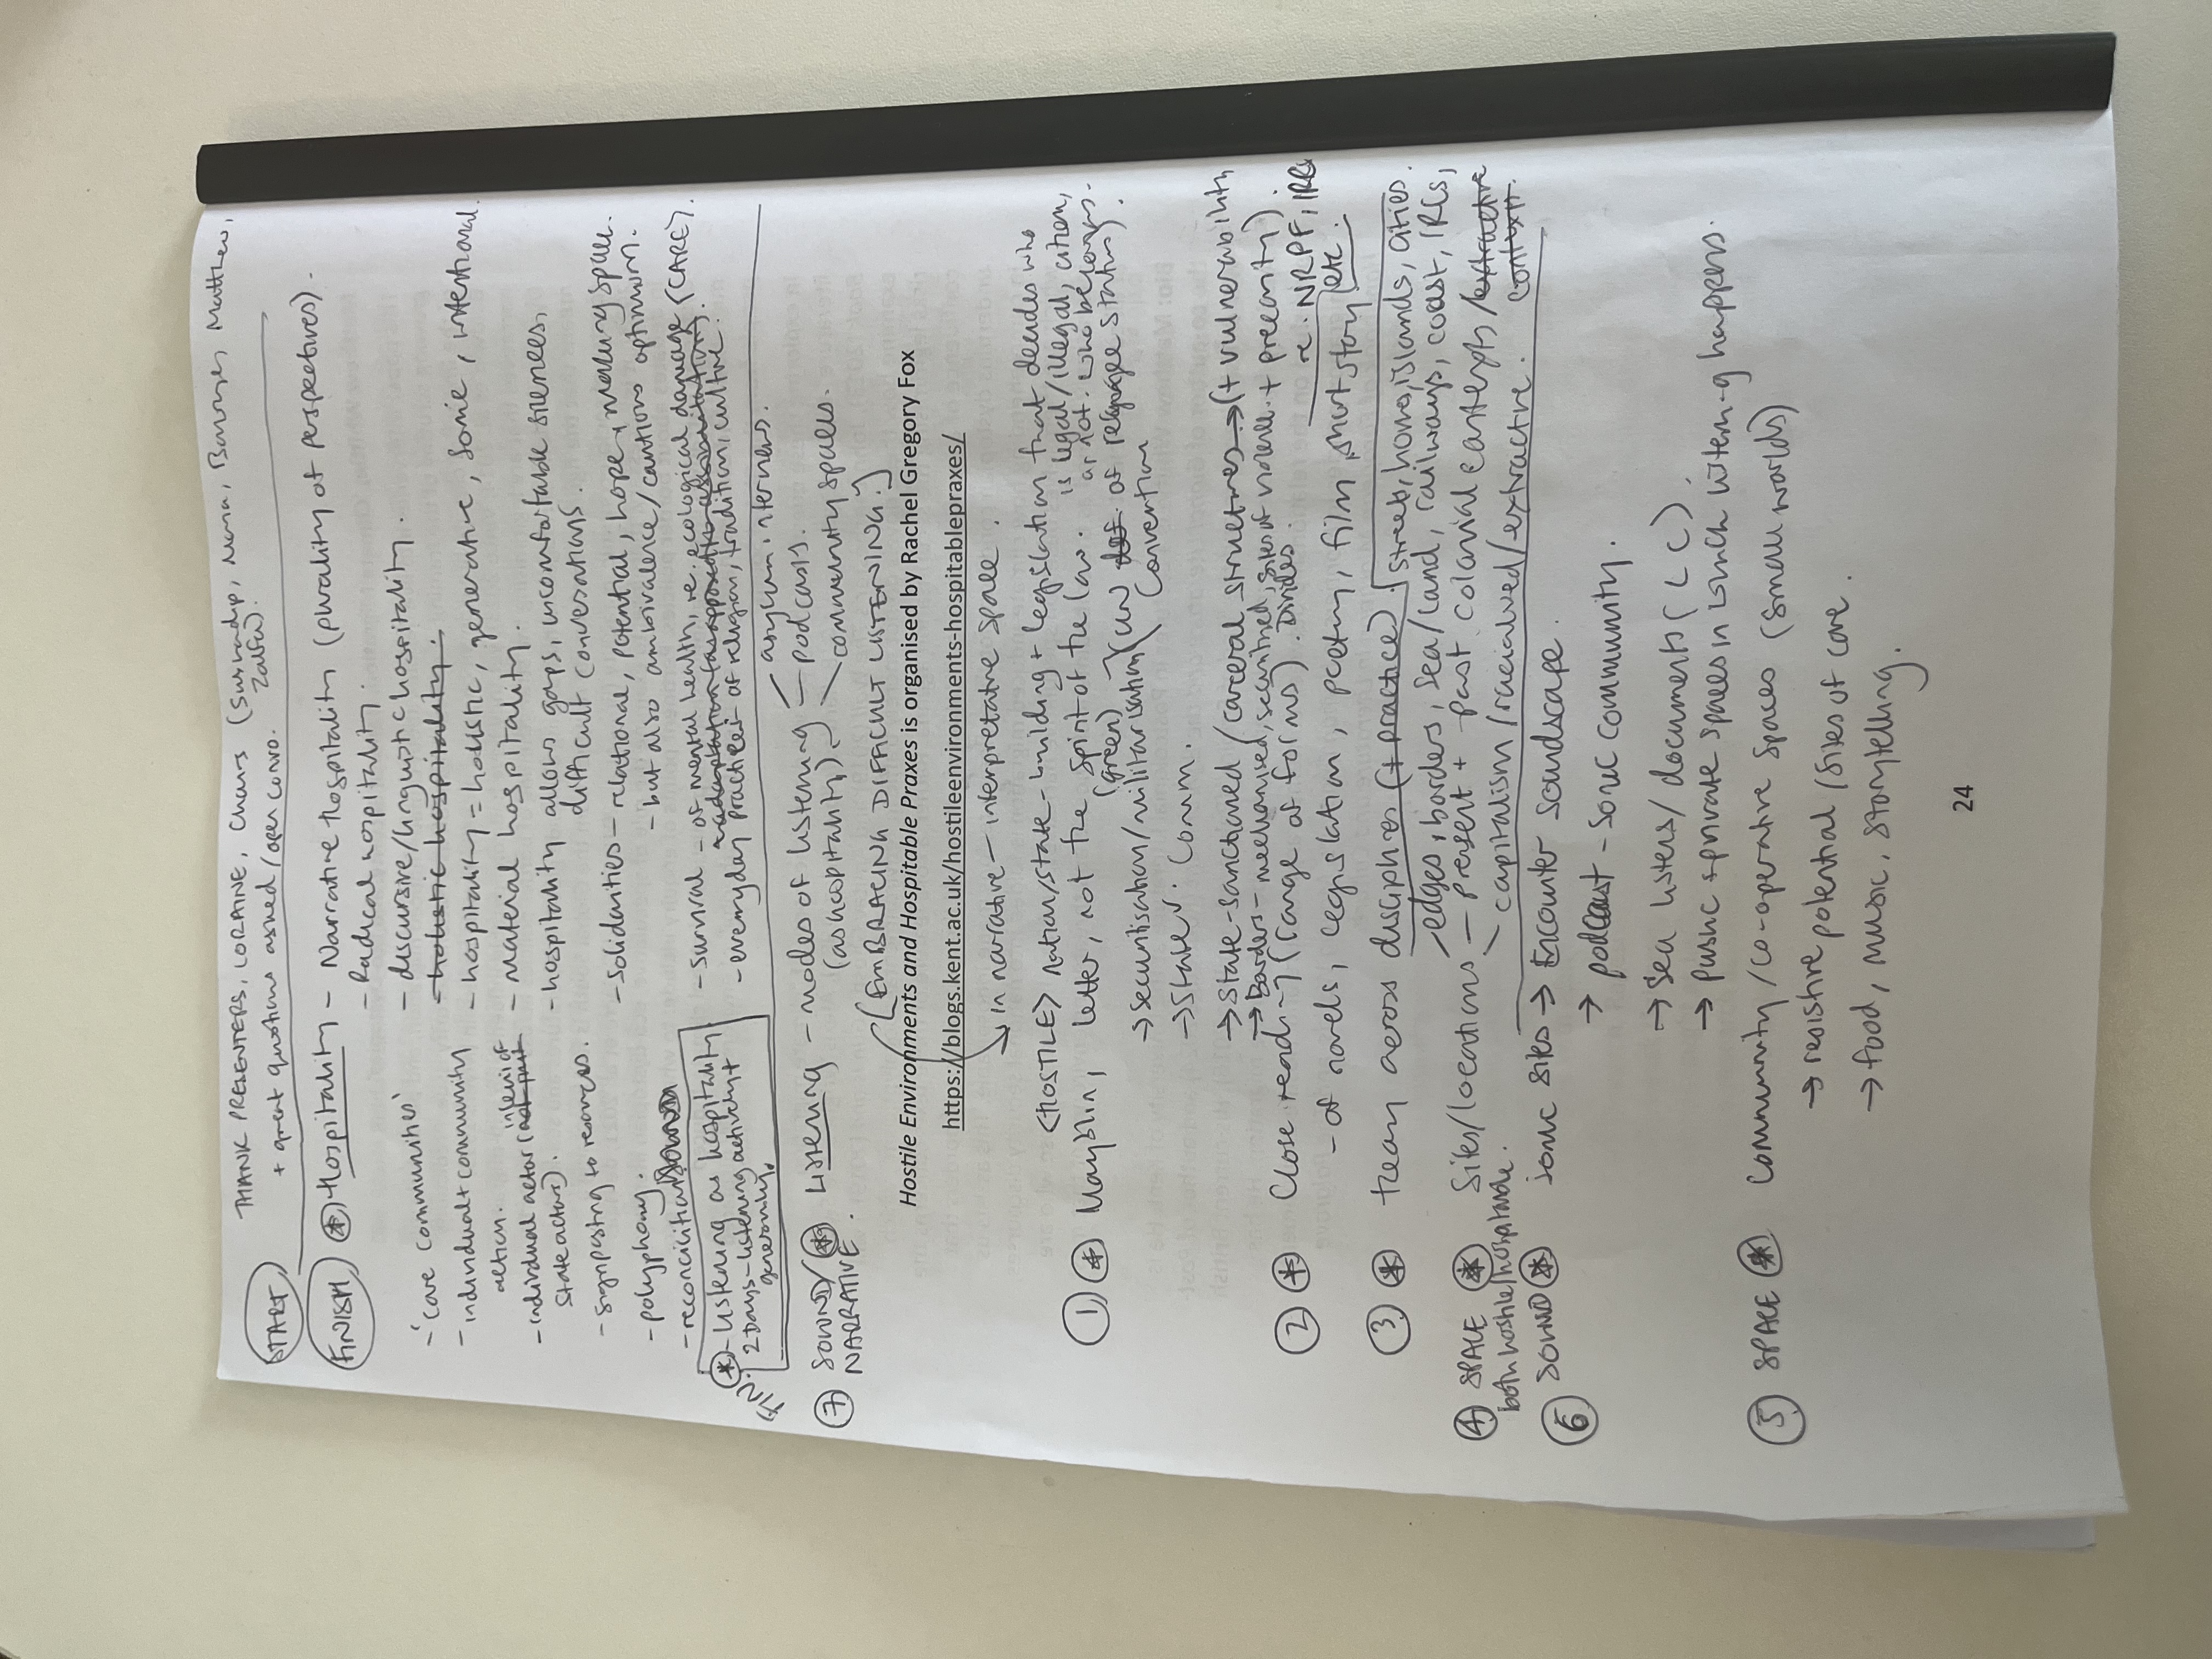 START
THANK PRESENTERS, LORRAINE, CHAIRS (Muna, Matthew,
+ great questions asked/open convo.
FINISH * Hospitality - Narrative Hospitality (plurality of perspectives).
- Radical hospitality.
- discursive/linguistic hospitality.
- holistic hospitality.
- hospitality = holistic, generative, sonic, intentional.
- material hospitality.
- hospitality allows gaps, uncomfortable silences,
difficult conversations.
- Solidarities - relational, potential, hope, making space.
- but also ambivalence/cautious optimism.
- survival - of mental health, re. ecological damage (CARE?).
- everyday practice of religion, tradition, culture.
- 'care communities'
- individual + community
action.
- individual actor (
state actors).
- signposting to resources.
- polyphony.
- reconciliation
* - Listening as hospitality
2 Days - listening activity +
generosity.
7 SOUND/ * Listening - modes of listening - asylum interviews.
NARRATIVE. (as hospitality) - podcasts.
- community spaces.
[EMBRACING DIFFICULT LISTENING.]
Hostile Environments and Hospitable Praxes is organised by Rachel Gregory Fox
https://blogs.kent.ac.uk/hostileenvironments-hospitablepraxes/
→ in narrative - interpretative space.
<HOSTILE> nation/state-building + legislation that decides who
1 * Mayblin, letter, not the spirit of the law. is legal/illegal, citizen,
or not. who belongs.
(UN of refugee status).
Convention
→ securitisation/militarisation
→ State v. Comm.
→ State-sanctioned (carceral structures → (+ vulnerability
→ Borders - mechanised, securitised, sites of violence. + precarity).
2 * Close reading (range of forms). Divides. re. NRPF, IRCs
- of novels, legislation, poetry, film, short story etc.
3 * team across disciplines (+ practice). streets, homes, islands, cities.
- edges, borders, sea/land, railways, coast, IRCs,
4 SPACE * Sites/locations - present + past colonial contexts/extractive
both hostile/hospitable. - capitalism/racialised/extractive. context.
6 SOUND * sonic sites → Encounter soundscape.
→ podcast - sonic community.
→ Sea listens/documents (LC).
→ public + private spaces in which listening happens.
5 SPACE * Community/co-operative spaces (small worlds)
→ resistive potential (sites of care.
→ food, music, storytelling.
24